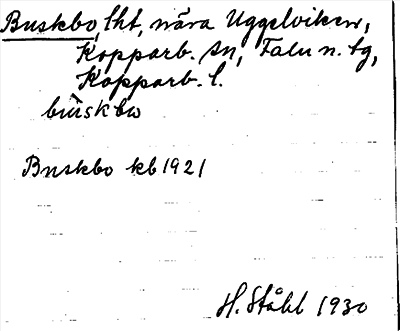 Buskbo, lht, nära Uggelviken,
Kopparb. sn, Falu n. tg,
Kopparb. l.
Buskbo kb 1921
H. Ståhl 1930